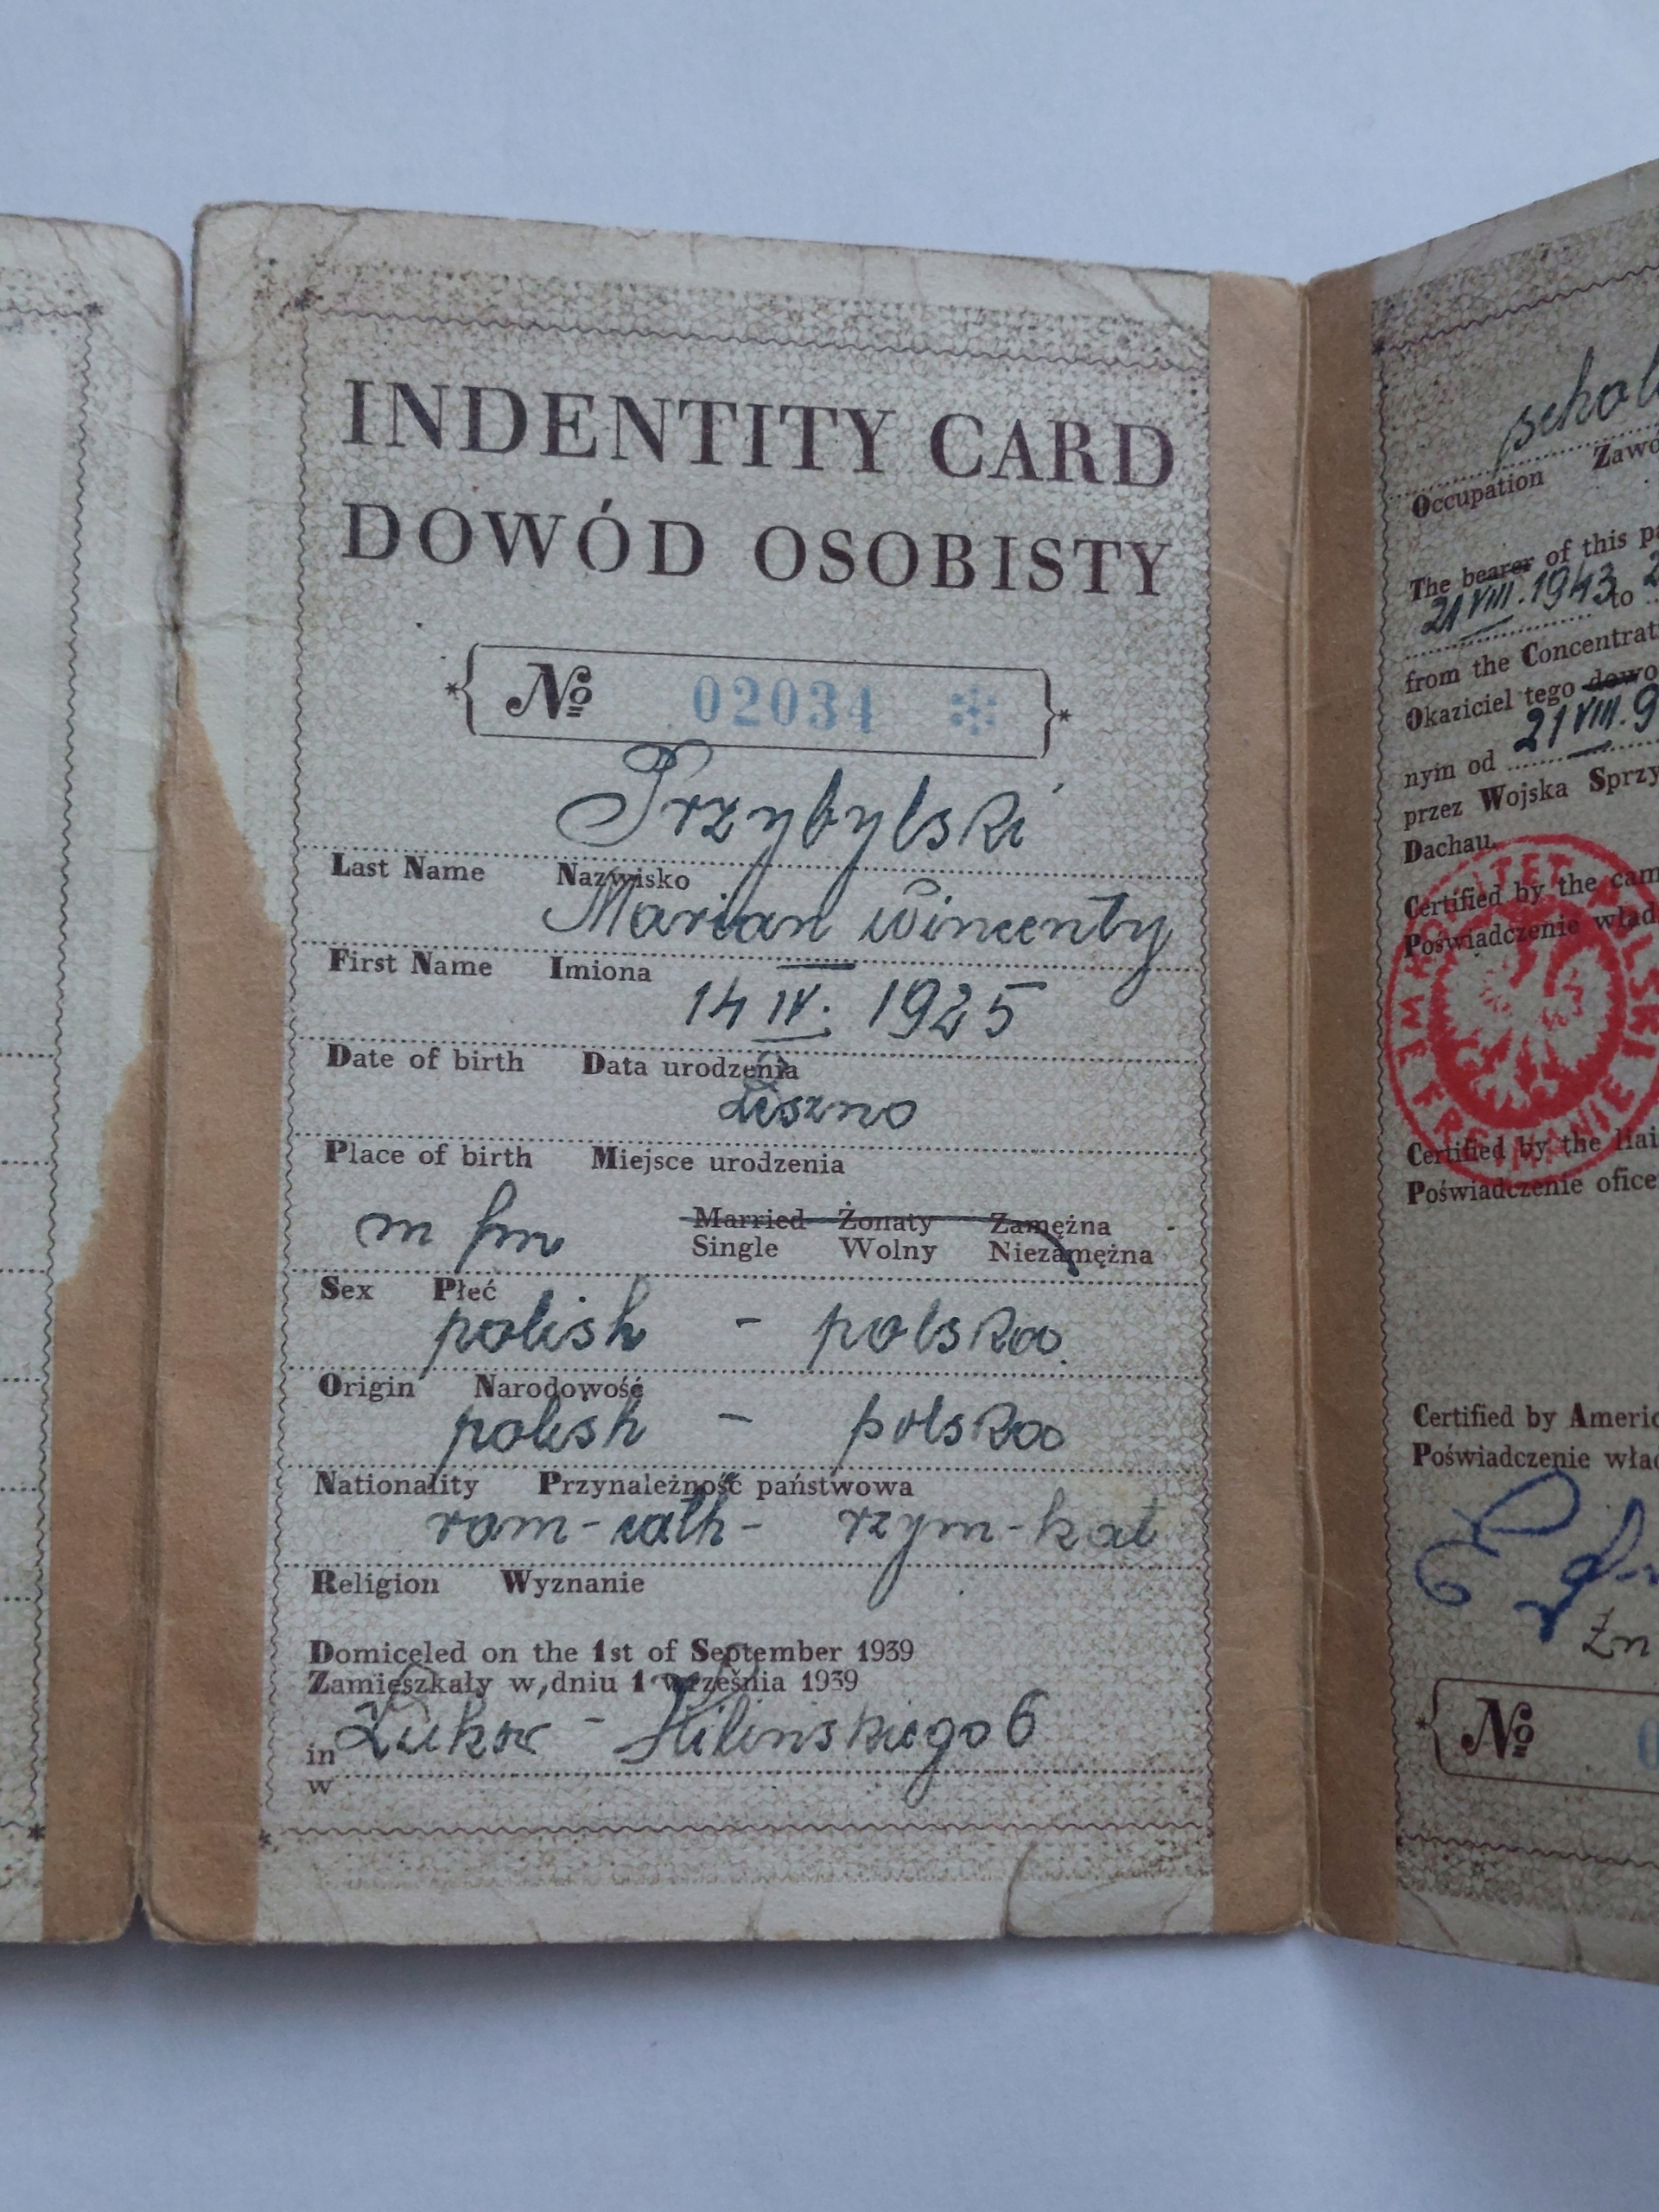 INDENTITY CARD
DOWÓD OSOBISTY
№ 02034
Przybylski
Last Name Nazwisko
Marian Wincenty
First Name Imiona
14 IV. 1925
Date of birth Data urodzenia
Liszno
Place of birth Miejsce urodzenia
m
Married Żonaty Zamężna
Single Wolny Niezamężna
Sex Płeć
polish - polska
Origin Narodowość
polish - polska
Nationality Przynależność państwowa
rom-cath - rzym-kat
Religion Wyznanie
Domiceled on the 1st of September 1939
Zamieszkały w dniu 1 września 1939
in Łuków - Kilinskiego 6
w
Occupation
The bearer of this
21 VIII. 1943 to
from the
Okaziciel tego
nym od 21 VIII.
przez Wojska
Dachau.
Certified by the
Poświadczenie
Certified by the
Poświadczenie
Certified by
Poświadczenie
№